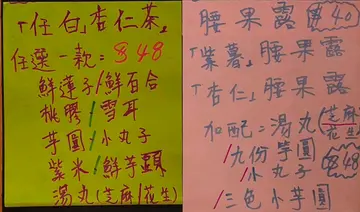 「任白」杏仁茶」
任選一款：$48
鮮蓮子/鮮百合
桃膠/雪耳
芋圓/小丸子
紫米/鮮芋頭
湯丸(芝麻/花生)
腰果露 $40
「紫薯」腰果露
「杏仁」腰果露
加配：湯丸(芝麻/花生)
/九份芋圓
/小丸子 $48
/三色小芋圓